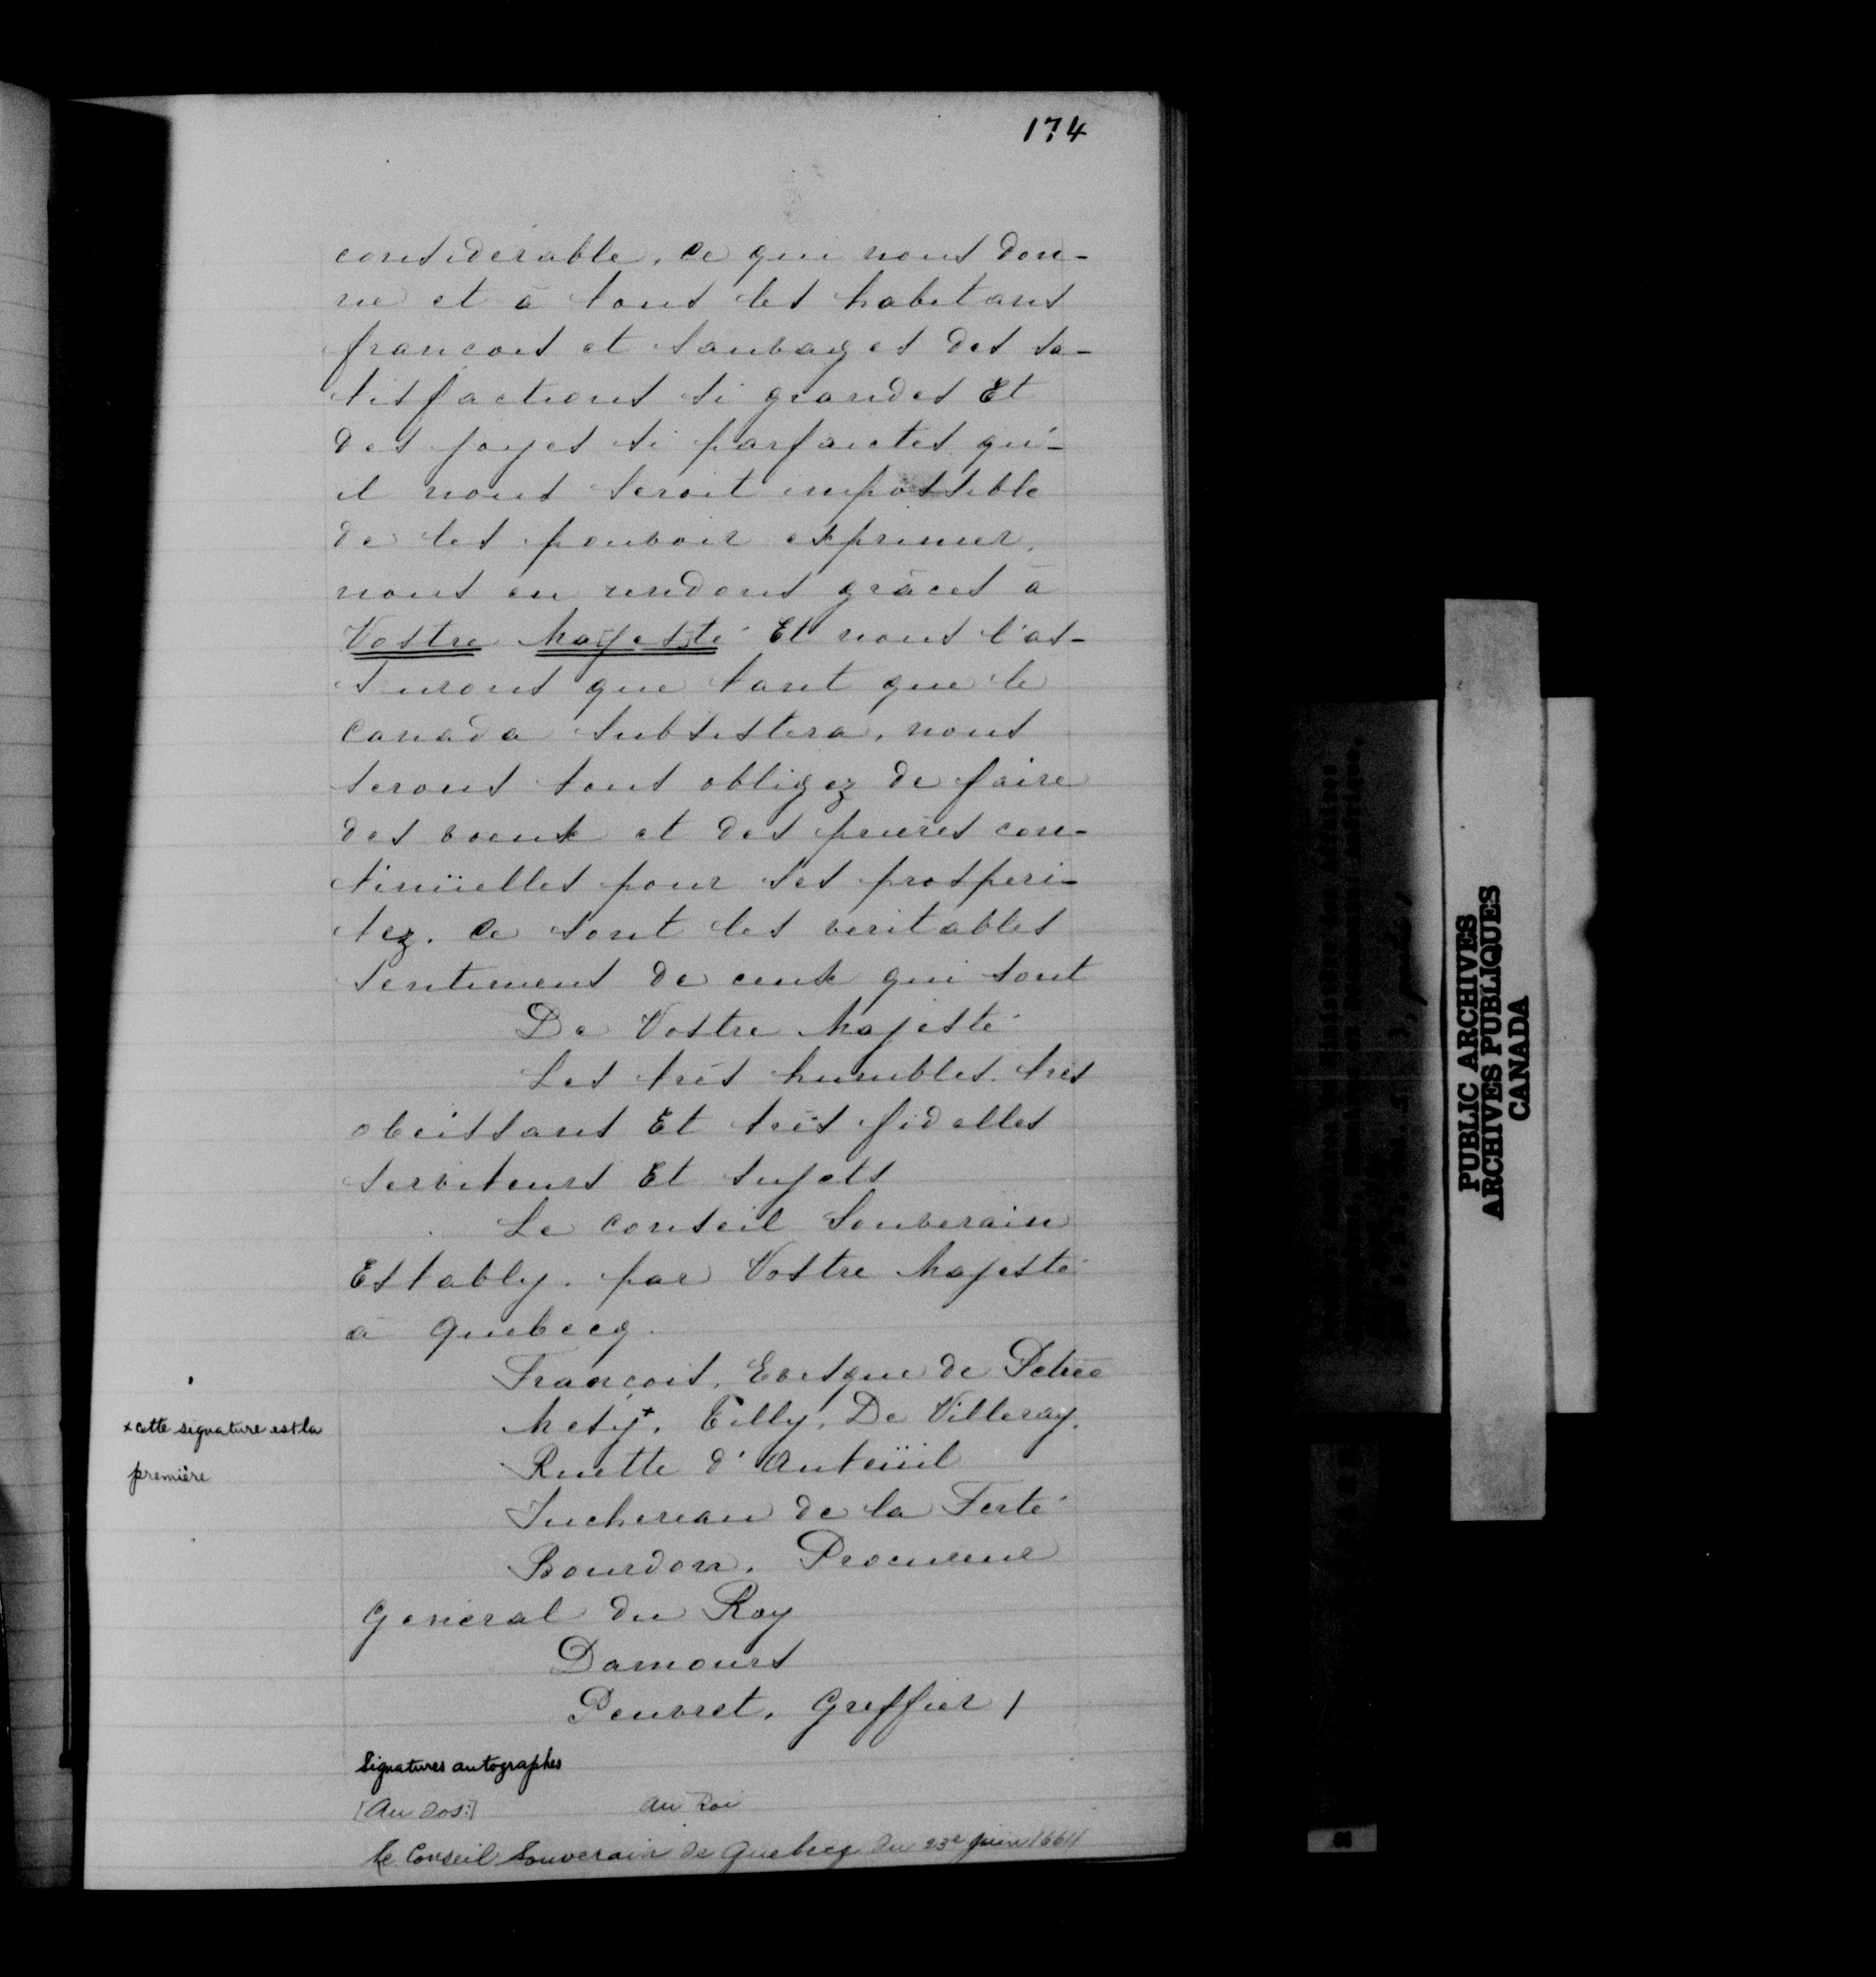 174
considerable, ce qui nous don-
ne et à tous les habitans
francois et sauvages des sa-
tisfactions si grandes Et
des joyes si parfaictes qu'-
il nous seroit impossible
de les pouvoir exprimer,
nous en rendons grâces à
Vostre Majesté Et nous l'as-
surons que tant que le
Canada subsistera, nous
serons tous obligez de faire
des voeux et des prières con-
tinüelles pour ses prosperi-
tez. Ce sont les veritables
sentimens de ceux qui sont
De Vostre Majesté
Les très humbles, très
obeissans Et très fidelles
serviteurs Et sujets
Le Conseil Souverain
Estably par Vostre Majesté
à Quebecq.
François, Evesque de Petrée
Mesy+, Tilly, De Villeray,
Ruette d'Auteüil
Juchereau de la Ferté
Bourdon, Procureur
General du Roy
Damours
Peuvret, Greffier /
+ cette signature est la
première
Signatures autographes
[Au dos:] Au Roi
Le Conseil Souverain de Quebecq du 23e juin 1664
PUBLIC ARCHIVES
ARCHIVES PUBLIQUES
CANADA